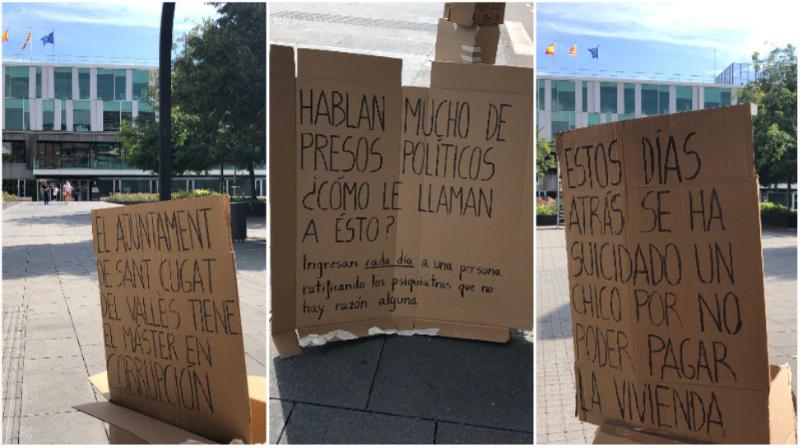 EL AJUNTAMENT
DE SANT CUGAT
DEL VALLÉS TIENE
EL MÁSTER EN
CORRUPCIÓN
HABLAN MUCHO DE
PRESOS POLÍTICOS
¿CÓMO LE LLAMAN
A ÉSTO?
Ingresan cada día a una persona
ratificando los psiquiatras que no
hay razón alguna
ESTOS DÍAS
ATRÁS SE HA
SUICIDADO UN
CHICO POR NO
PODER PAGAR
LA VIVIENDA